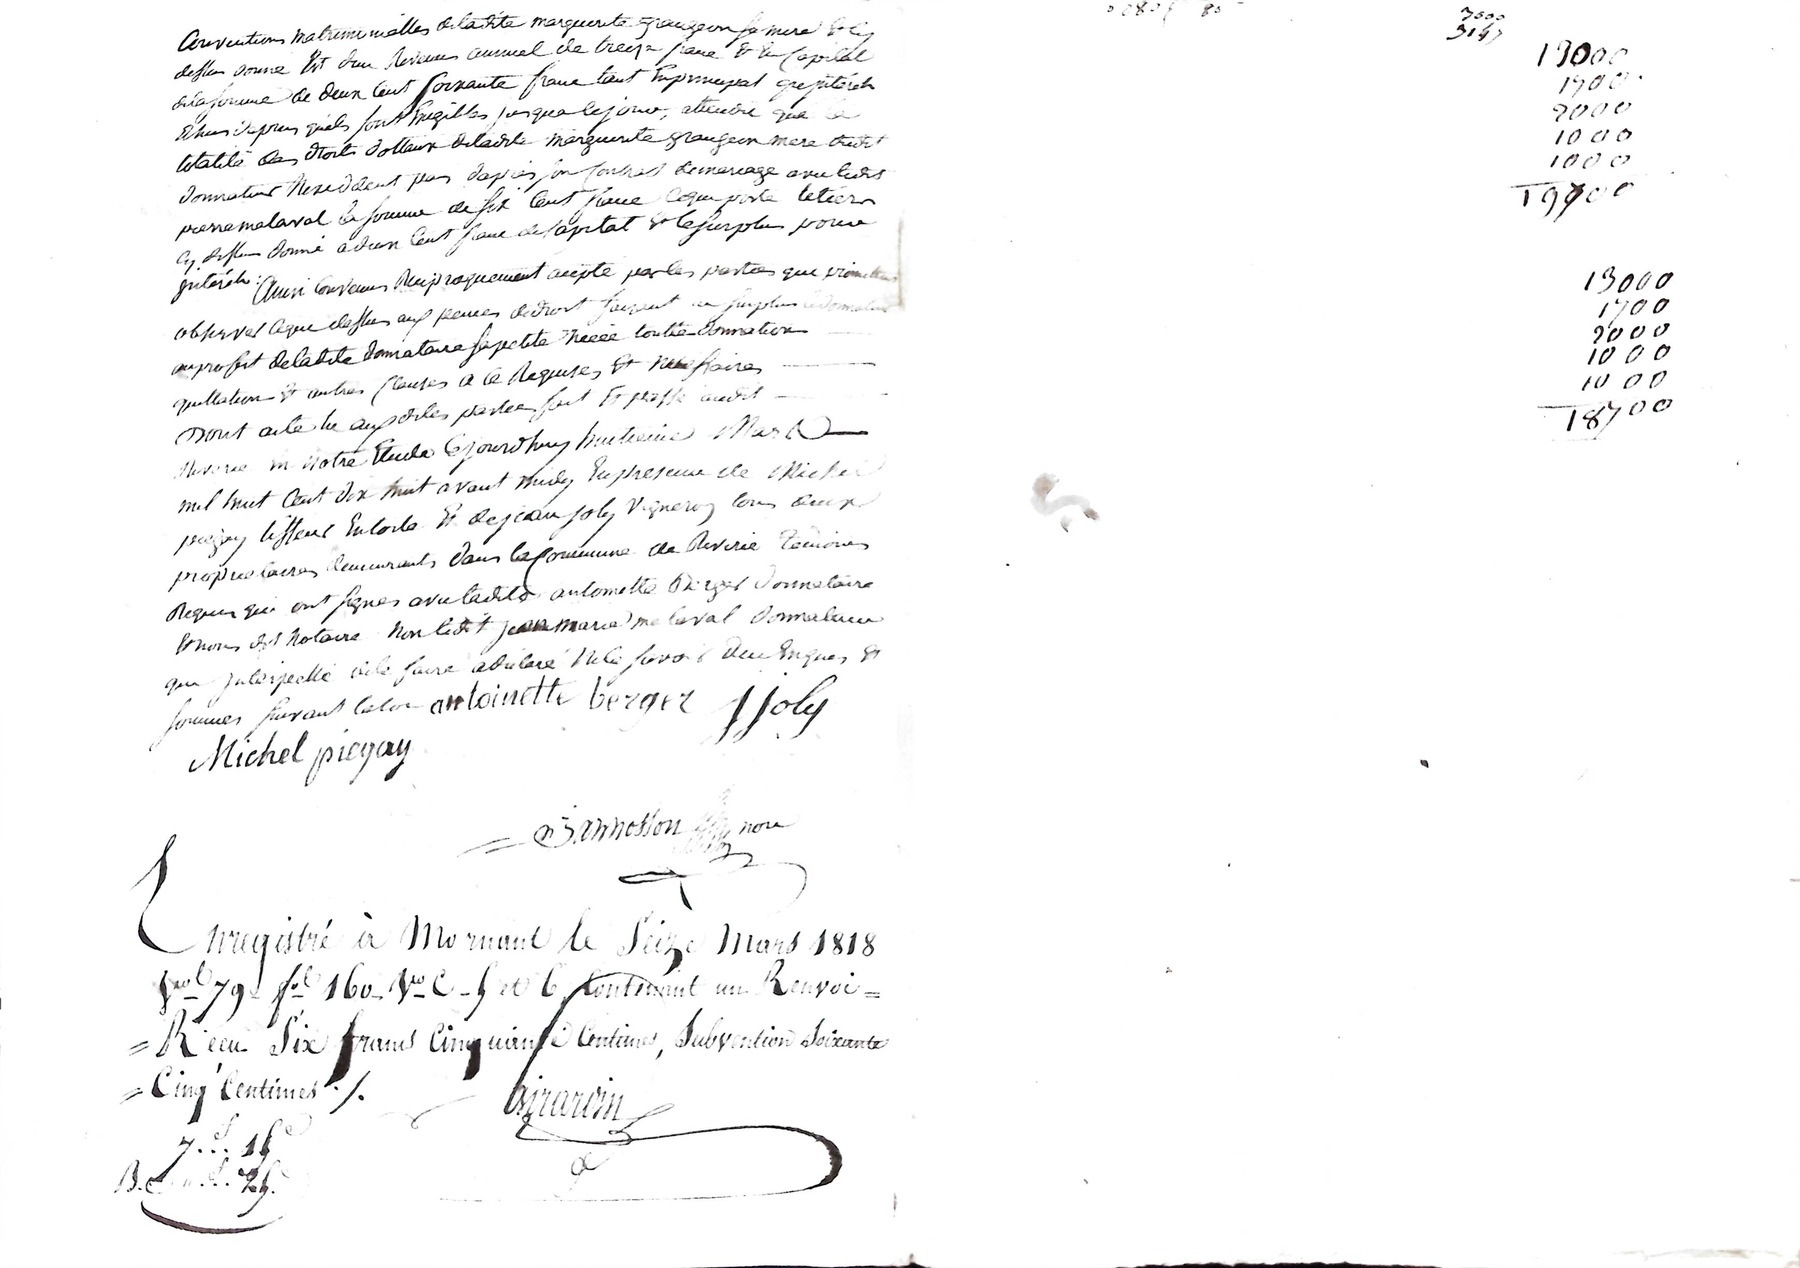 Conventions matrimonialles deladite marguerite grangeon sa mere & cy
dessus donné Est dun Revenu annuel de treize franc & du Capital
dela somme de deux Cent soixante franc tant Enprincipal qu'jntérêts
Echus depuis quils sont Exigibles jusqua cejour, attendu que la
totalité des droits dottaux deladite marguerite grangeon mere dudit
donnateur Nexcédent pas dapres son Contrat demariage avec ledit
pierre malaval la somme de six Cent franc Cequi porte letiers
cy dessus donné adeux Cent franc de Capital & lesurplus pour
jntérêts. Ainsi Convenu Réciproquement accepté par les parties qui promettent
observer Ceque dessus aux peines dedroit faisant au surplus ledonnateur
auproffit deladite donnataire sa petite niéce toutte donnation
quittation & autres clauses a ce Requises & nécessaires
Dont acte lu auxdites parties fait Et passé audit
Riverie En notre Etude Cejourdhuy huitième Mars
mil huit Cent dix huit avant midy Enpresence de Michel
piegay tisseur Entoile Et dejean joly Vigneron tous deux
proprietaires demeurants dans laCommune de Riverie Temoins
Requis qui ont signés avec ladite antoinette Berger donnataire
Et nous dit Notaire Non ledit jean marie malaval donnateur
qui jnterpellé dele faire adéclaré Nele savoir dece Enquis &
sommés suivant laloi antoinette berger jjoly
Michel piegay
Jannosson nore
Enregistré à Mornant le Seize Mars 1818
Vol 79 fol 160 Vo C. 5 et 6, Contenant un Renvoi =
= Reçu Six francs Cinquante Centimes, Subvention Soixante
= Cinq Centimes ./.
girardin
7... 15
3000
13000
1700
2000
1000
1000
19700
13000
1700
2000
1000
1000
18700